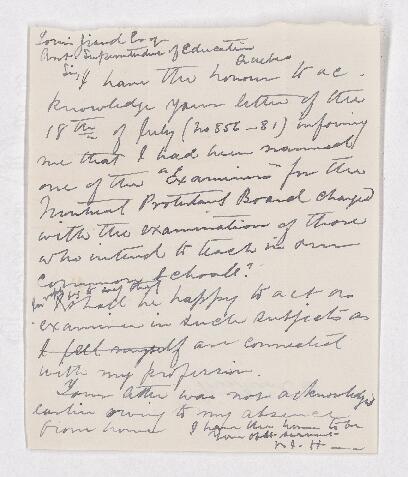 Louis Giard Esqr
Asst. Superintendent of Education
Quebec
Sir,
I have the honour to ac-
knowledge your letter of the
18th of July (No 856-81) informing
me that I had been named
one of the "Examiners for the
Montreal Protestant Board charged
with the examination of those
who intend to teach in our
Common Schools".
I beg to say that
I shall be happy to act as
examiner in such subjects as
I feel myself are connected
with my profession.
Your letter was not acknowledged
earlier owing to my absence
from home
I have the honor to be
Your Obt servant